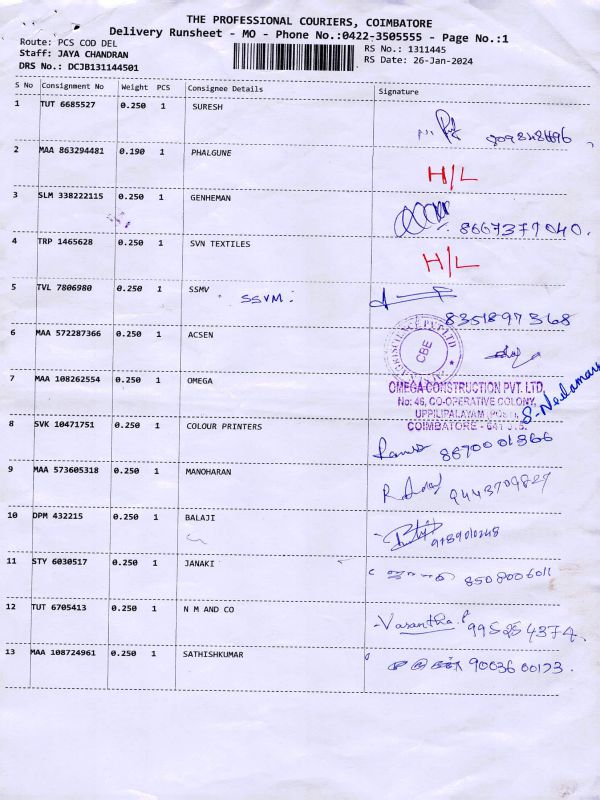 THE PROFESSIONAL COURIERS, COIMBATORE
Delivery Runsheet - MO - Phone No.:0422-3505555 - Page No.:1
Route: PCS COD DEL
RS No.: 1311445
Staff: JAYA CHANDRAN
RS Date: 26-Jan-2024
DRS No.: DCJB131144501
S No Consignment No Weight PCS Consignee Details Signature
1 TUT 6685527 0.250 1 SURESH
2 MAA 863294481 0.190 1 PHALGUNE H/L
3 SLM 338222115 0.250 1 GENHEMAN 8667377040.
4 TRP 1465628 0.250 1 SVN TEXTILES H/L
5 TVL 7806980 0.250 1 SSMV SSVM. 8351897368
6 MAA 572287366 0.250 1 ACSEN
CBE
7 MAA 108262554 0.250 1 OMEGA
OMEGA CONSTRUCTION PVT. LTD,
No: 46, CO-OPERATIVE COLONY,
UPPILIPALAYAM (POST),
COIMBATORE - 641 015.
8 SVK 10471751 0.250 1 COLOUR PRINTERS 8870001366
9 MAA 573605318 0.250 1 MANOHARAN 9443709827
10 DPM 432215 0.250 1 BALAJI 9789010248
11 STY 6030517 0.250 1 JANAKI 8508006011
12 TUT 6705413 0.250 1 N M AND CO Vasantha.P 995254374.
13 MAA 108724961 0.250 1 SATHISHKUMAR 9003600123.